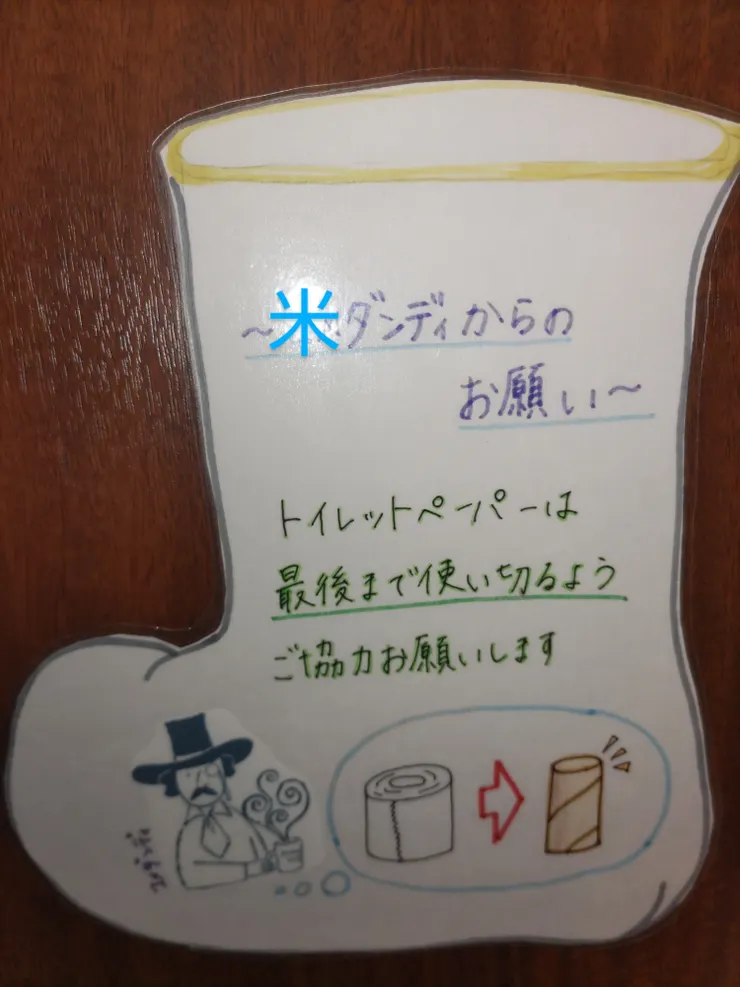 ~米ダンディからの
お願い~
トイレットペーパーは
最後まで使い切るよう
ご協力お願いします